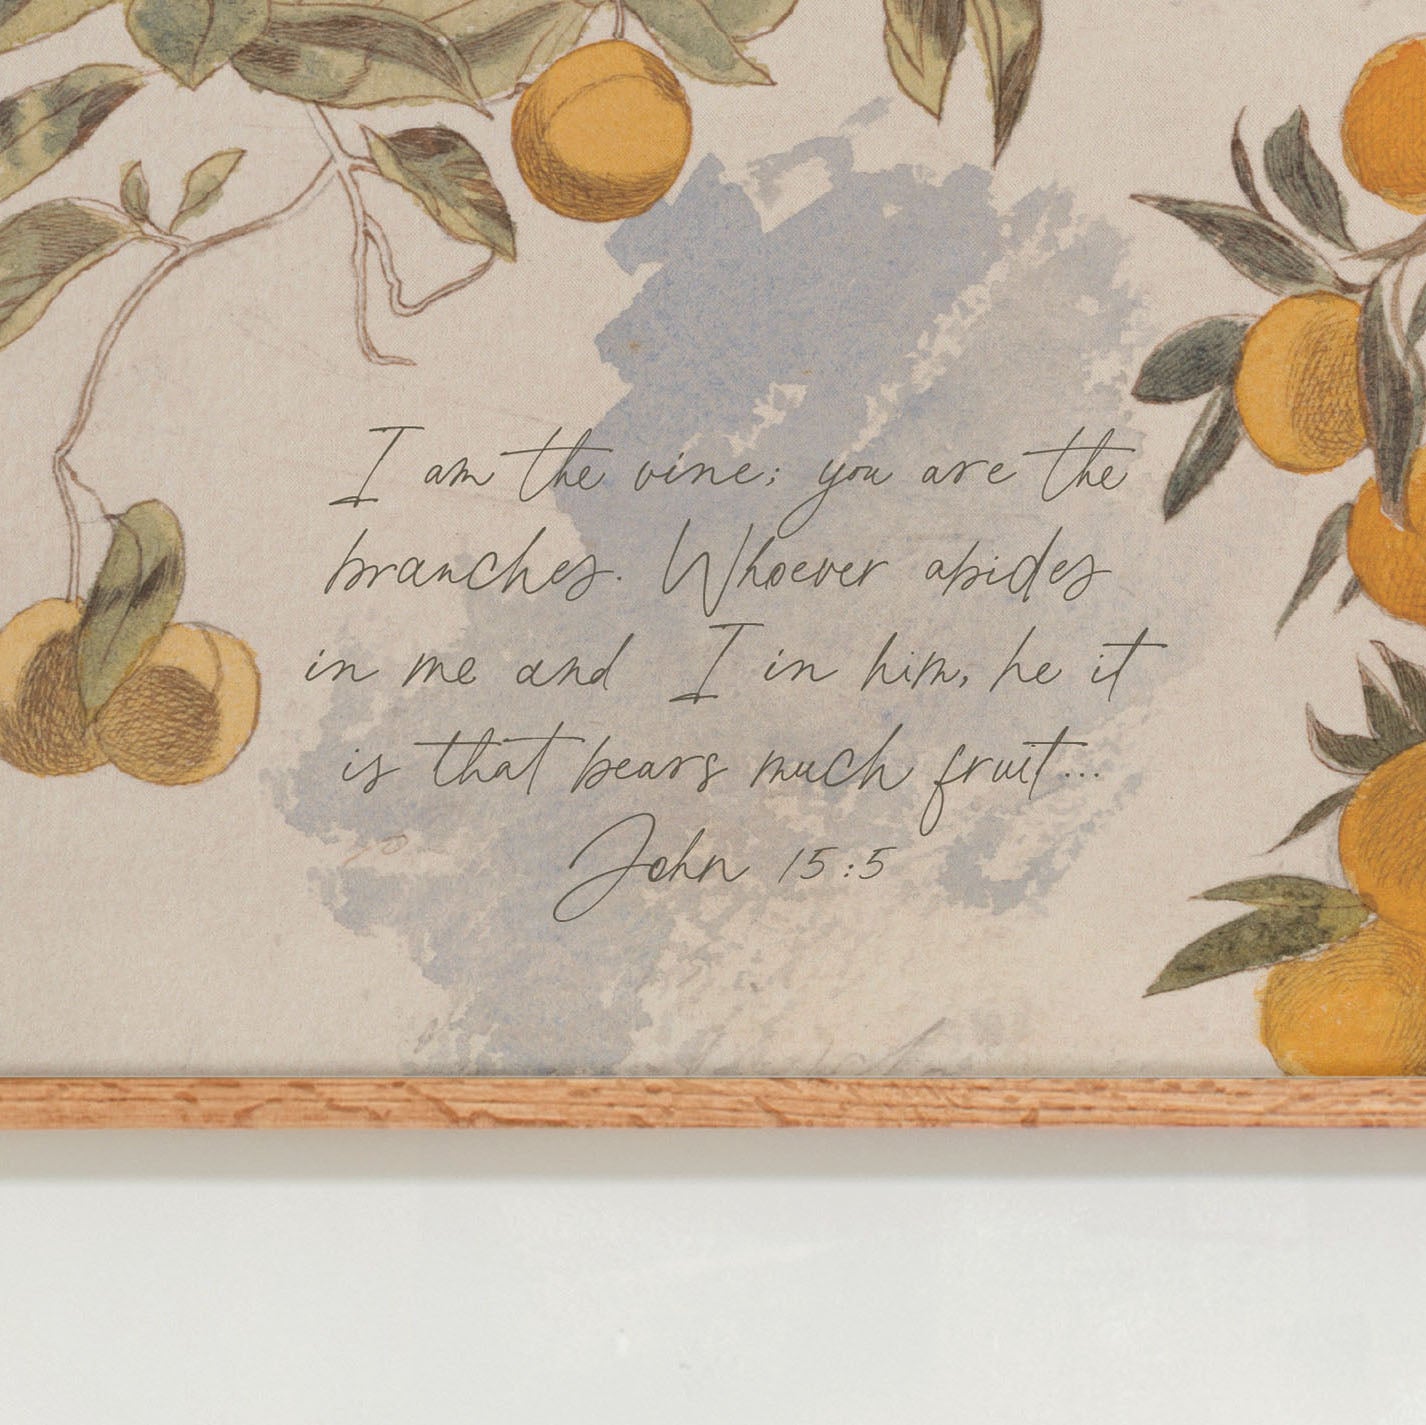 I am the vine; you are the
branches. Whoever abides
in me and I in him, he it
is that bears much fruit...
John 15:5